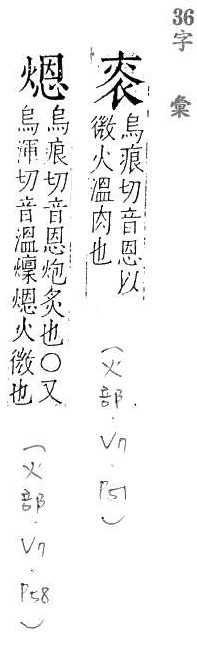 36
字 彙
烏痕切音恩以
微火溫肉也
（火部．V7．P51）
煾
烏痕切音恩炮炙也○又
烏渾切音溫燣煾火微也
（火部．V7．P58）